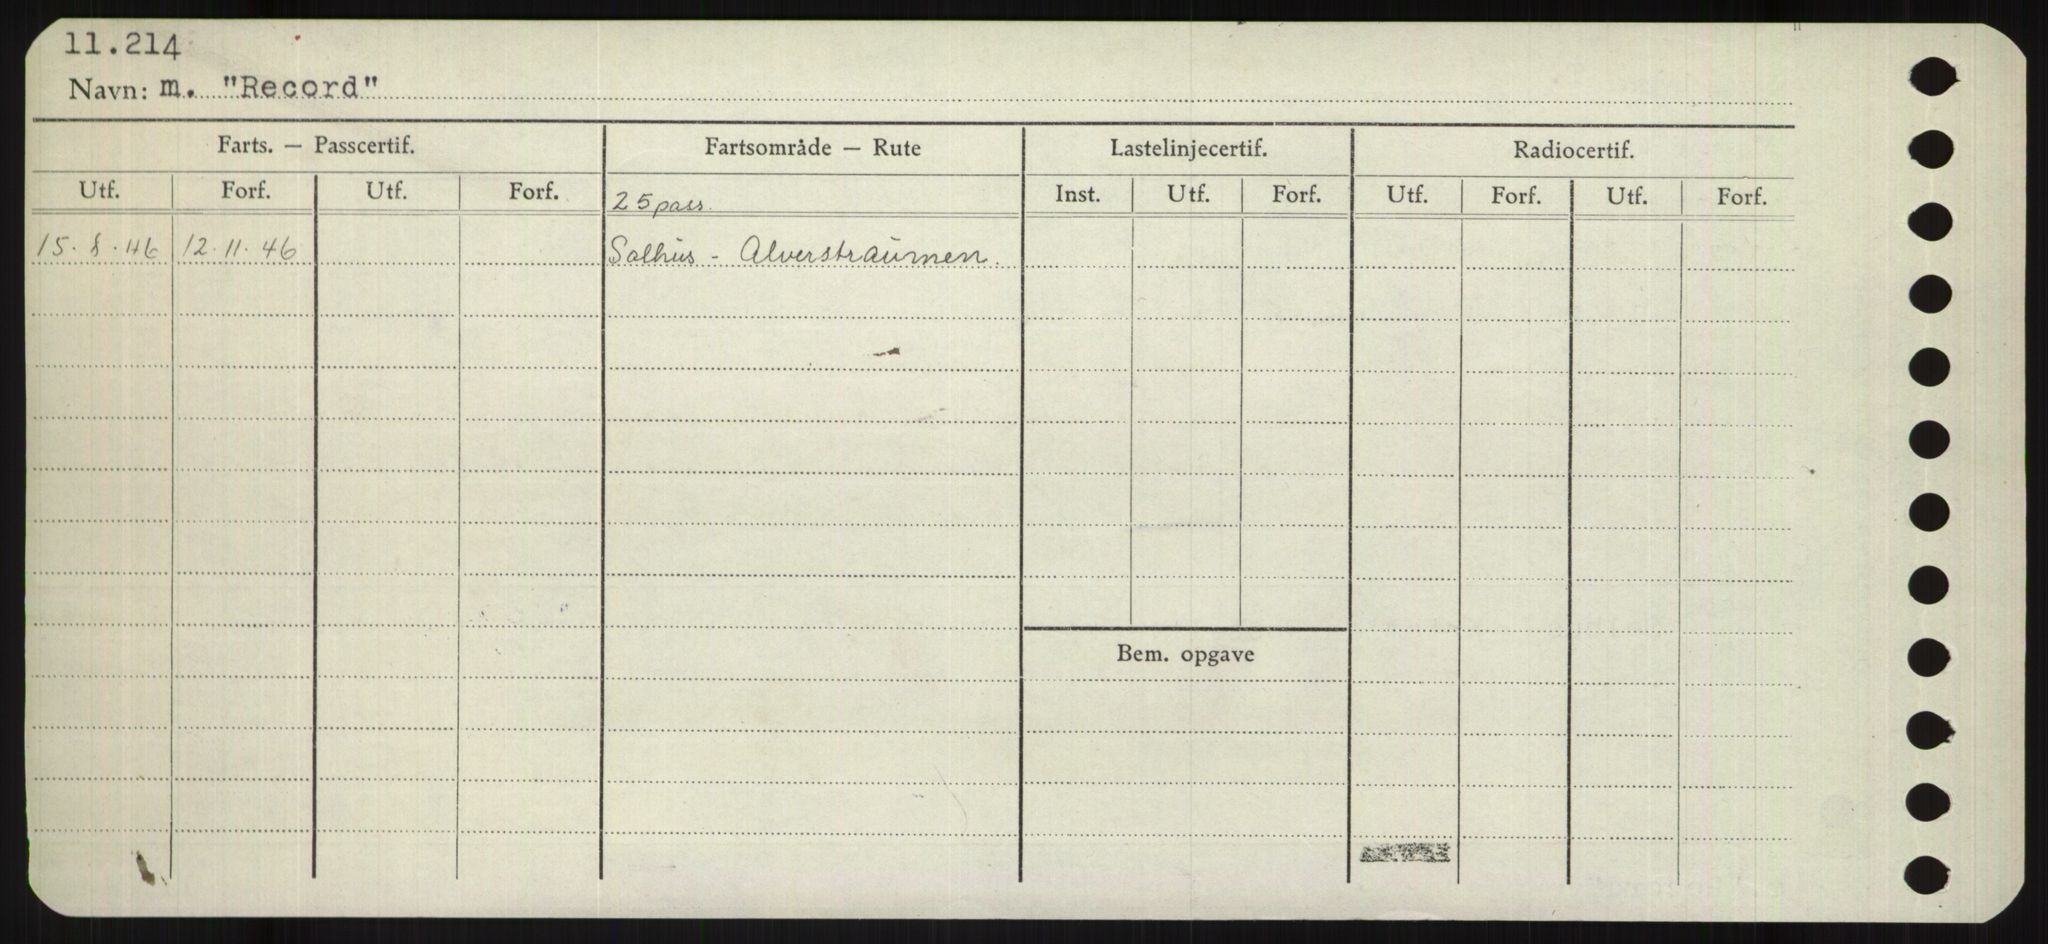 11.214
Navn: m. "Record"
Farts. — Passcertif. Fartsområde — Rute Lastelinjecertif. Radiocertif.
Utf. Forf. Utf. Forf. 25 pass. Inst. Utf. Forf. Utf. Forf. Utf. Forf.
15.8.46 12.11.46 Salhus - Alverstraumen.
Bem. opgave